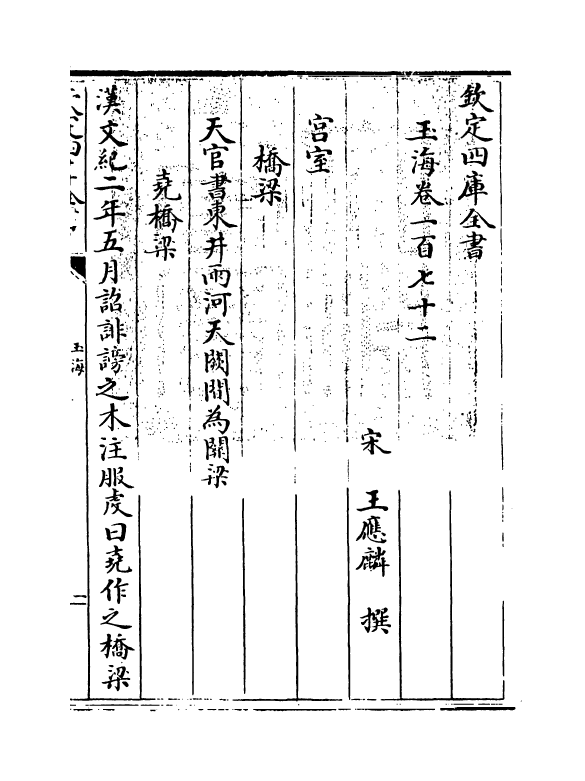 欽定四庫全書
玉海卷一百七十二
宋 王應麟 撰
宮室
橋梁
天官書東井兩河天闕間為關梁
堯橋梁
漢文紀二年五月詔誹謗之木注服虔曰堯作之橋梁
玉海
二